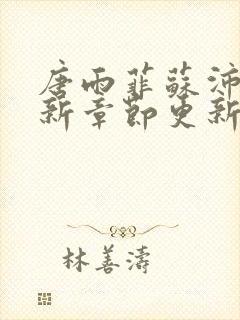 唐雨菲蘇沛
新章節更新
林善濤